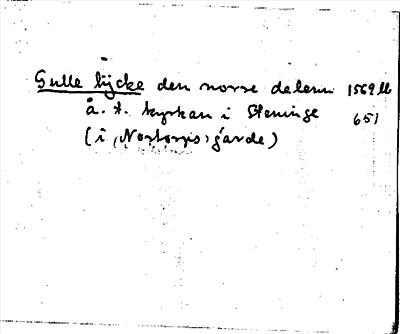 Gulle lycke den norre delenn 1569 lb
å. t. kyrkan i Steninge 651
(i, Nortorps, gärde)